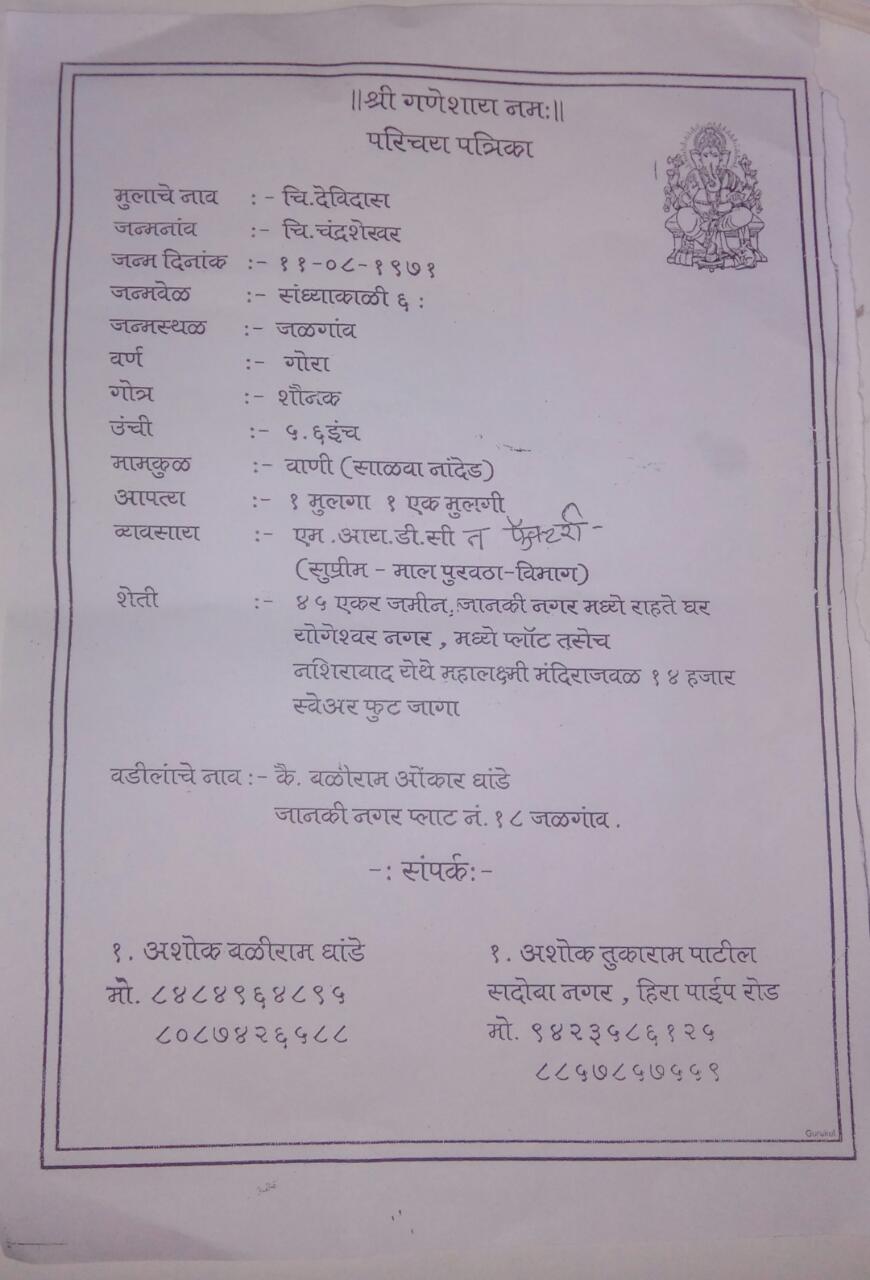 ||श्री गणेशाय नमः||
परिचय पत्रिका
मुलाचे नाव :- चि.देविदास
जन्मनांव :- चि.चंद्रशेखर
जन्म दिनांक :- ११-०८-१९७१
जन्मवेळ :- संध्याकाळी ६ :
जन्मस्थळ :- जळगांव
वर्ण :- गोरा
गोत्र :- शौनक
उंची :- ५.६इंच
मामकुळ :- वाणी (साळवा नांदेड)
आपत्य :- १ मुलगा १ एक मुलगी
व्यावसाय :- एम.आय.डी.सी त फॅक्टरी -
(सुप्रीम - माल पुरवठा-विभाग)
शेती :- ४५ एकर जमीन, जानकी नगर मध्ये राहते घर
योगेश्वर नगर , मध्ये प्लॉट तसेच
नशिराबाद येथे महालक्ष्मी मंदिराजवळ १४ हजार
स्वेअर फुट जागा
वडीलांचे नाव :- कै. बळीराम ओंकार धांडे
जानकी नगर प्लाट नं. १८ जळगांव .
-: संपर्क:-
१. अशोक बळीराम धांडे
मो. ८४८४९६४८९५
८०८७४२६५८८
१. अशोक तुकाराम पाटील
सदोबा नगर , हिरा पाईप रोड
मो. ९४२३५८६१२५
८८५७८५७५५९
Gurukul